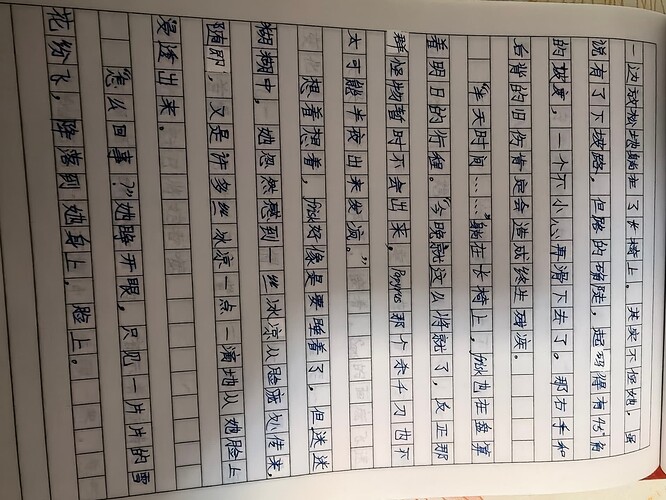 一边放松地躺在了长椅上。其实不怪她，虽
说有了下坡路，但陡的确陡，起码得有45°角
的坡度，一个不小心再滑下去了。那右手和
后背的旧伤肯定会造成终生残疾。
“半天时间……”躺在长椅上，也在盘算
着明日的行程。“今晚就这么将就了，反正那
群怪物暂时不会出来，那个杀千刀也不
太可能半夜出来发疯。”
想着想着，好像是要睡着了。但迷迷
糊糊中，她忽然感到一丝冰凉从脸庞划传来，
随即，又是许多丝冰凉一点一滴地从她脸上
浸透出来。
“怎么回事？”她睁开眼，只见一片片的雪
花纷飞，降落到她身上，脸上。